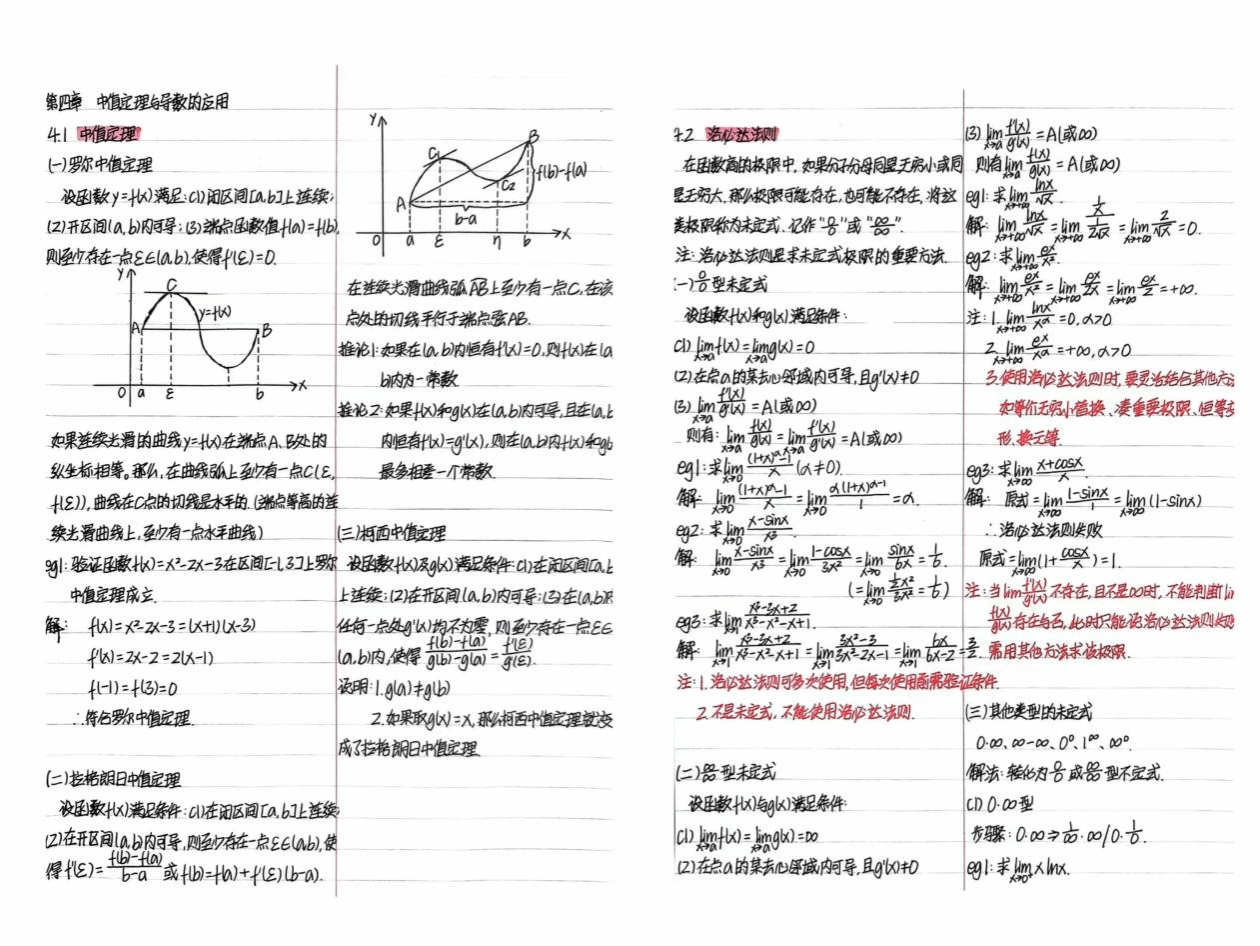 第四章 中值定理与导数的应用
4.1 中值定理
(一)罗尔中值定理
设函数y=f(x)满足:(1)闭区间[a,b]上连续;
(2)开区间(a,b)内可导;(3)端点函数值f(a)=f(b),
则至少存在一点ε∈(a,b),使得f'(ε)=0.
y
C
y=f(x)
A
B
0 a ε b x
如果连续光滑的曲线y=f(x)在端点A、B处的
纵坐标相等。那么,在曲线弧上至少有一点C(ε,
f(ε)),曲线在C点的切线是水平的.(端点等高的连
续光滑曲线上,至少有一点水平曲线)
eg1:验证函数f(x)=x²-2x-3在区间[-1,3]上罗尔
中值定理成立.
解: f(x)=x²-2x-3=(x+1)(x-3)
f'(x)=2x-2=2(x-1)
f(-1)=f(3)=0
∴符合罗尔中值定理.
(二)拉格朗日中值定理
设函数f(x)满足条件:(1)在闭区间[a,b]上连续;
(2)在开区间(a,b)内可导,则至少存在一点ε∈(a,b),使
得f'(ε)=\frac{f(b)-f(a)}{b-a} 或f(b)=f(a)+f'(ε)(b-a).
y
C₁
B
f(b)-f(a)
C₂
A
b-a
0 a ε η b x
在连续光滑曲线弧AB上至少有一点C,在该
点处的切线平行于端点弦AB.
推论1:如果在(a,b)内恒有f'(x)=0,则f(x)在(a
b)内为一常数
推论2:如果f(x)和g(x)在(a,b)内可导,且在(a,b
内恒有f'(x)=g'(x),则在(a,b)内f(x)和g(
最多相差一个常数.
(三)柯西中值定理
设函数f(x)及g(x)满足条件:(1)在闭区间[a,b
上连续;(2)在开区间(a,b)内可导;(3)在(a,b)内
任何一点处g'(x)均不为零,则至少存在一点ε∈
(a,b)内,使得\frac{f(b)-f(a)}{g(b)-g(a)}=\frac{f'(ε)}{g'(ε)}.
说明:1.g(a)≠g(b)
2.如果取g(x)=x,那么柯西中值定理就变
成了拉格朗日中值定理
4.2 洛必达法则
在函数商的极限中,如果分子分母同是无穷小或同
是无穷大,那么极限可能存在,也可能不存在,将这
类极限称为未定式.记作“\frac{0}{0}”或“\frac{∞}{∞}”.
注:洛必达法则是求未定式极限的重要方法.
(一)\frac{0}{0}型未定式
设函数f(x)和g(x)满足条件:
(1)\lim_{x→a}f(x)=\lim_{x→a}g(x)=0
(2)在点a的某去心邻域内可导,且g'(x)≠0
(3)\lim_{x→a}\frac{f'(x)}{g'(x)}=A(或∞)
则有:\lim_{x→a}\frac{f(x)}{g(x)}=\lim_{x→a}\frac{f'(x)}{g'(x)}=A(或∞)
eg1:求\lim_{x→0}\frac{(1+x)^α-1}{x}(α≠0).
解: \lim_{x→0}\frac{(1+x)^α-1}{x}=\lim_{x→0}\frac{α(1+x)^{α-1}}{1}=α.
eg2:求\lim_{x→0}\frac{x-sinx}{x³}
解: \lim_{x→0}\frac{x-sinx}{x³}=\lim_{x→0}\frac{1-cosx}{3x²}=\lim_{x→0}\frac{sinx}{6x}=\frac{1}{6}.
(=\lim_{x→0}\frac{\frac{1}{2}x²}{3x²}=\frac{1}{6})
eg3:求\lim_{x→1}\frac{x³-3x+2}{x³-x²-x+1}
解: \lim_{x→1}\frac{x³-3x+2}{x³-x²-x+1}=\lim_{x→1}\frac{3x²-3}{3x²-2x-1}=\lim_{x→1}\frac{6x}{6x-2}=\frac{3}{2}.
注:1.洛必达法则可多次使用,但每次使用前需验证条件.
2.不是未定式,不能使用洛必达法则.
(二)\frac{∞}{∞}型未定式
设函数f(x)与g(x)满足条件:
(1)\lim_{x→a}f(x)=\lim_{x→a}g(x)=∞
(2)在点a的某去心邻域内可导,且g'(x)≠0
(3)\lim_{x→a}\frac{f'(x)}{g'(x)}=A(或∞)
则有\lim_{x→a}\frac{f(x)}{g(x)}=A(或∞)
eg1:求\lim_{x→+∞}\frac{lnx}{√x}.
解: \lim_{x→+∞}\frac{lnx}{√x}=\lim_{x→+∞}\frac{\frac{1}{x}}{\frac{1}{2√x}}=\lim_{x→+∞}\frac{2}{√x}=0.
eg2:求\lim_{x→+∞}\frac{e^x}{x²}.
解: \lim_{x→+∞}\frac{e^x}{x²}=\lim_{x→+∞}\frac{e^x}{2x}=\lim_{x→+∞}\frac{e^x}{2}=+∞.
注:1.\lim_{x→+∞}\frac{lnx}{x^α}=0,α>0
2.\lim_{x→+∞}\frac{e^x}{x^α}=+∞,α>0
3.使用洛必达法则时,要灵活结合其他方法
如等价无穷小替换、凑重要极限、恒等变
形、换元等.
eg3:求\lim_{x→∞}\frac{x+cosx}{x}
解: 原式=\lim_{x→∞}\frac{1-sinx}{1}=\lim_{x→∞}(1-sinx)
∴洛必达法则失败
原式=\lim_{x→∞}(1+\frac{cosx}{x})=1.
注:当lim\frac{f'(x)}{g'(x)}不存在,且不是∞时,不能判断li
\frac{f(x)}{g(x)}存在与否,此时只能说洛必达法则失
需用其他方法求该极限.
(三)其他类型的未定式
0·∞、∞-∞、0⁰、1^∞、∞⁰.
解法:转化为\frac{0}{0}或\frac{∞}{∞}型不定式.
(1)0·∞型
步骤:0·∞⇒\frac{1}{∞}·∞/0·\frac{1}{0}.
eg1:求\lim_{x→0⁺}x lnx.